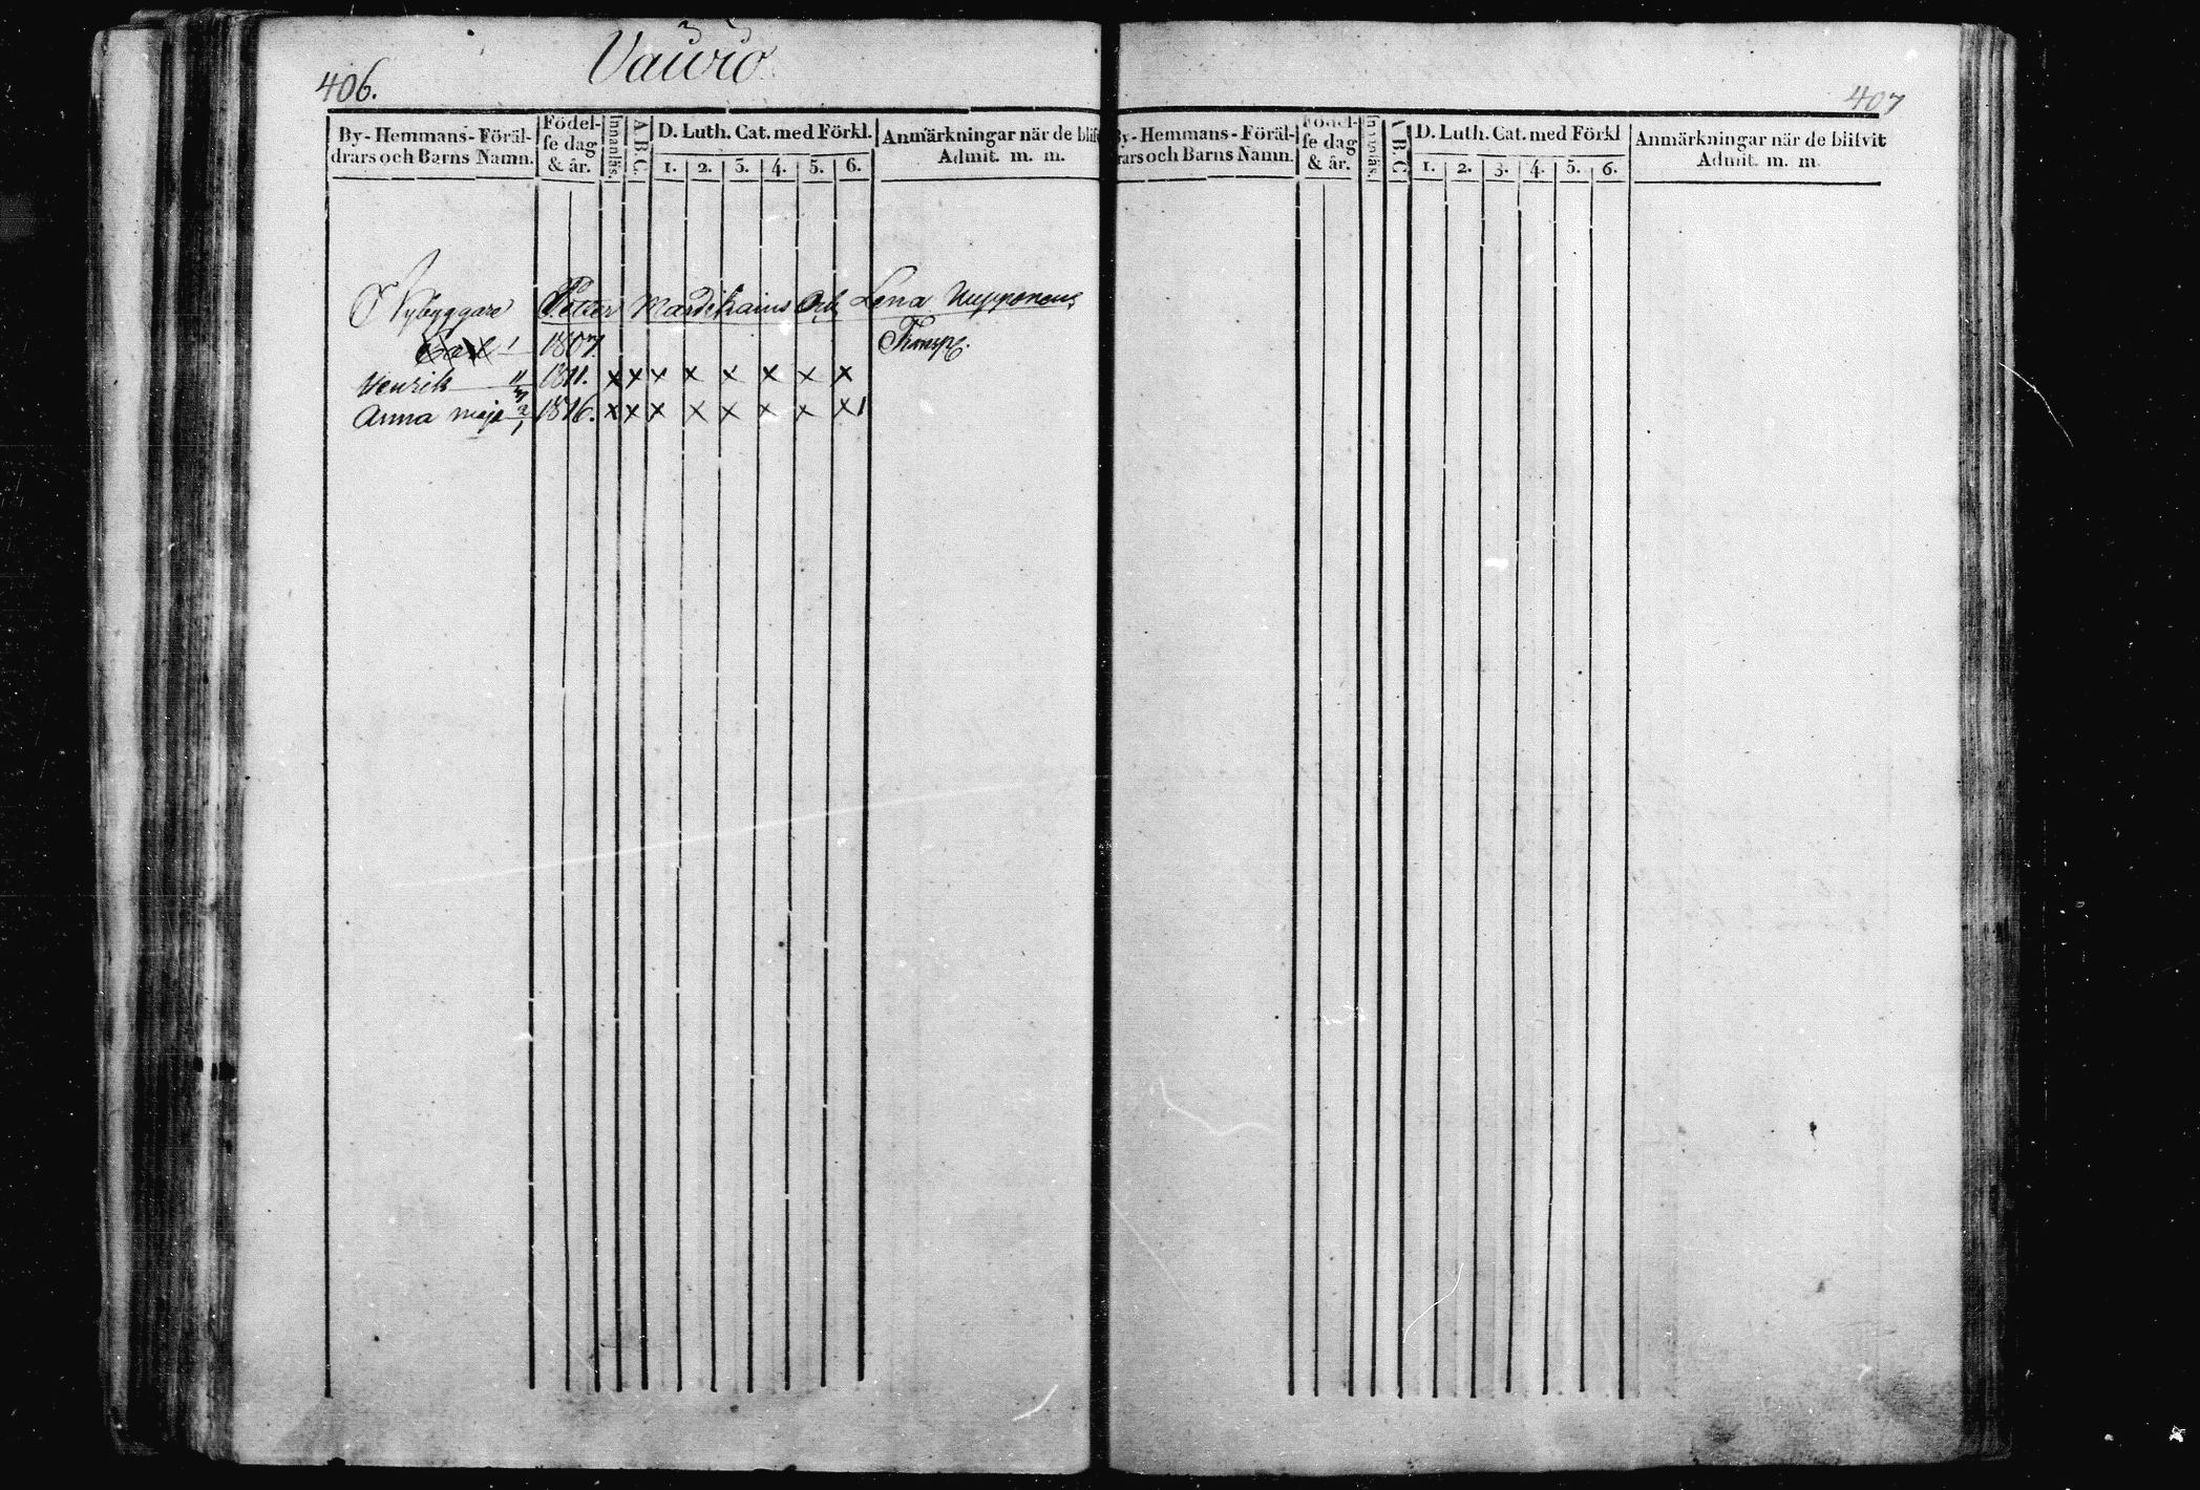 406.
Vaurio
By-Hemmans-Föräl-
drars och Barns Namn.
Födel-
se dag
& år.
Innanläs.
A.B.C.
D. Luth. Cat. med Förkl.
1. 2. 3. 4. 5. 6.
Anmärkningar när de blif
Admit. m. m.
Nybyggare Petter Och Lena
1 1807. Transp.
Henrik 11/3 1811. x x x x x x x x
Anna Maja 2/1 1816. x x x x x x x x 1
407
By-Hemmans-Föräl-
rars och Barns Namn.
Födel-
se dag
& år.
Innanläs.
A.B.C
D. Luth. Cat. med Förkl
1. 2. 3. 4. 5. 6.
Anmärkningar när de blifvit
Admit. m. m